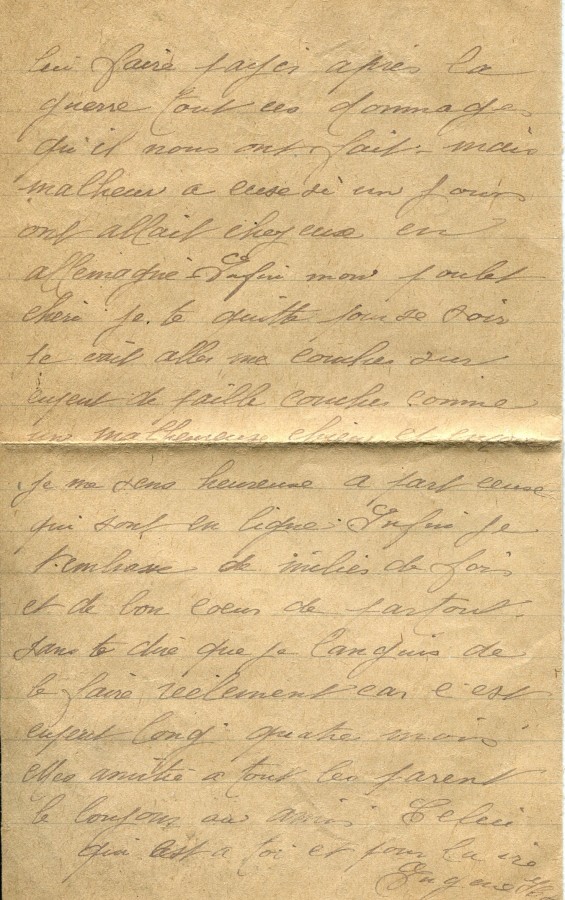 lui faire payer après la
guerre tout ces dommages
qu'il nous ont fait. mais
malheur a ceuse si un jours
ont allait chez euse en
allemagne. Enfin mon poulet
chéri je te quitte pour se soir
je vait aller me coucher sur
un peut de paille coucher comme
un malheureuse chien et
je me sens heureuse a part ceuse
qui sont en ligne. Enfin je
t'embrasse de milies de fois
et de bon coeur de partout.
sans te dire que je languis de
le faire réelement car c'est
un peut long quatres mois
Mes amitié a tout les parent
le bonjour au amis Celui
qui est a toi et pour la vie
Eugène